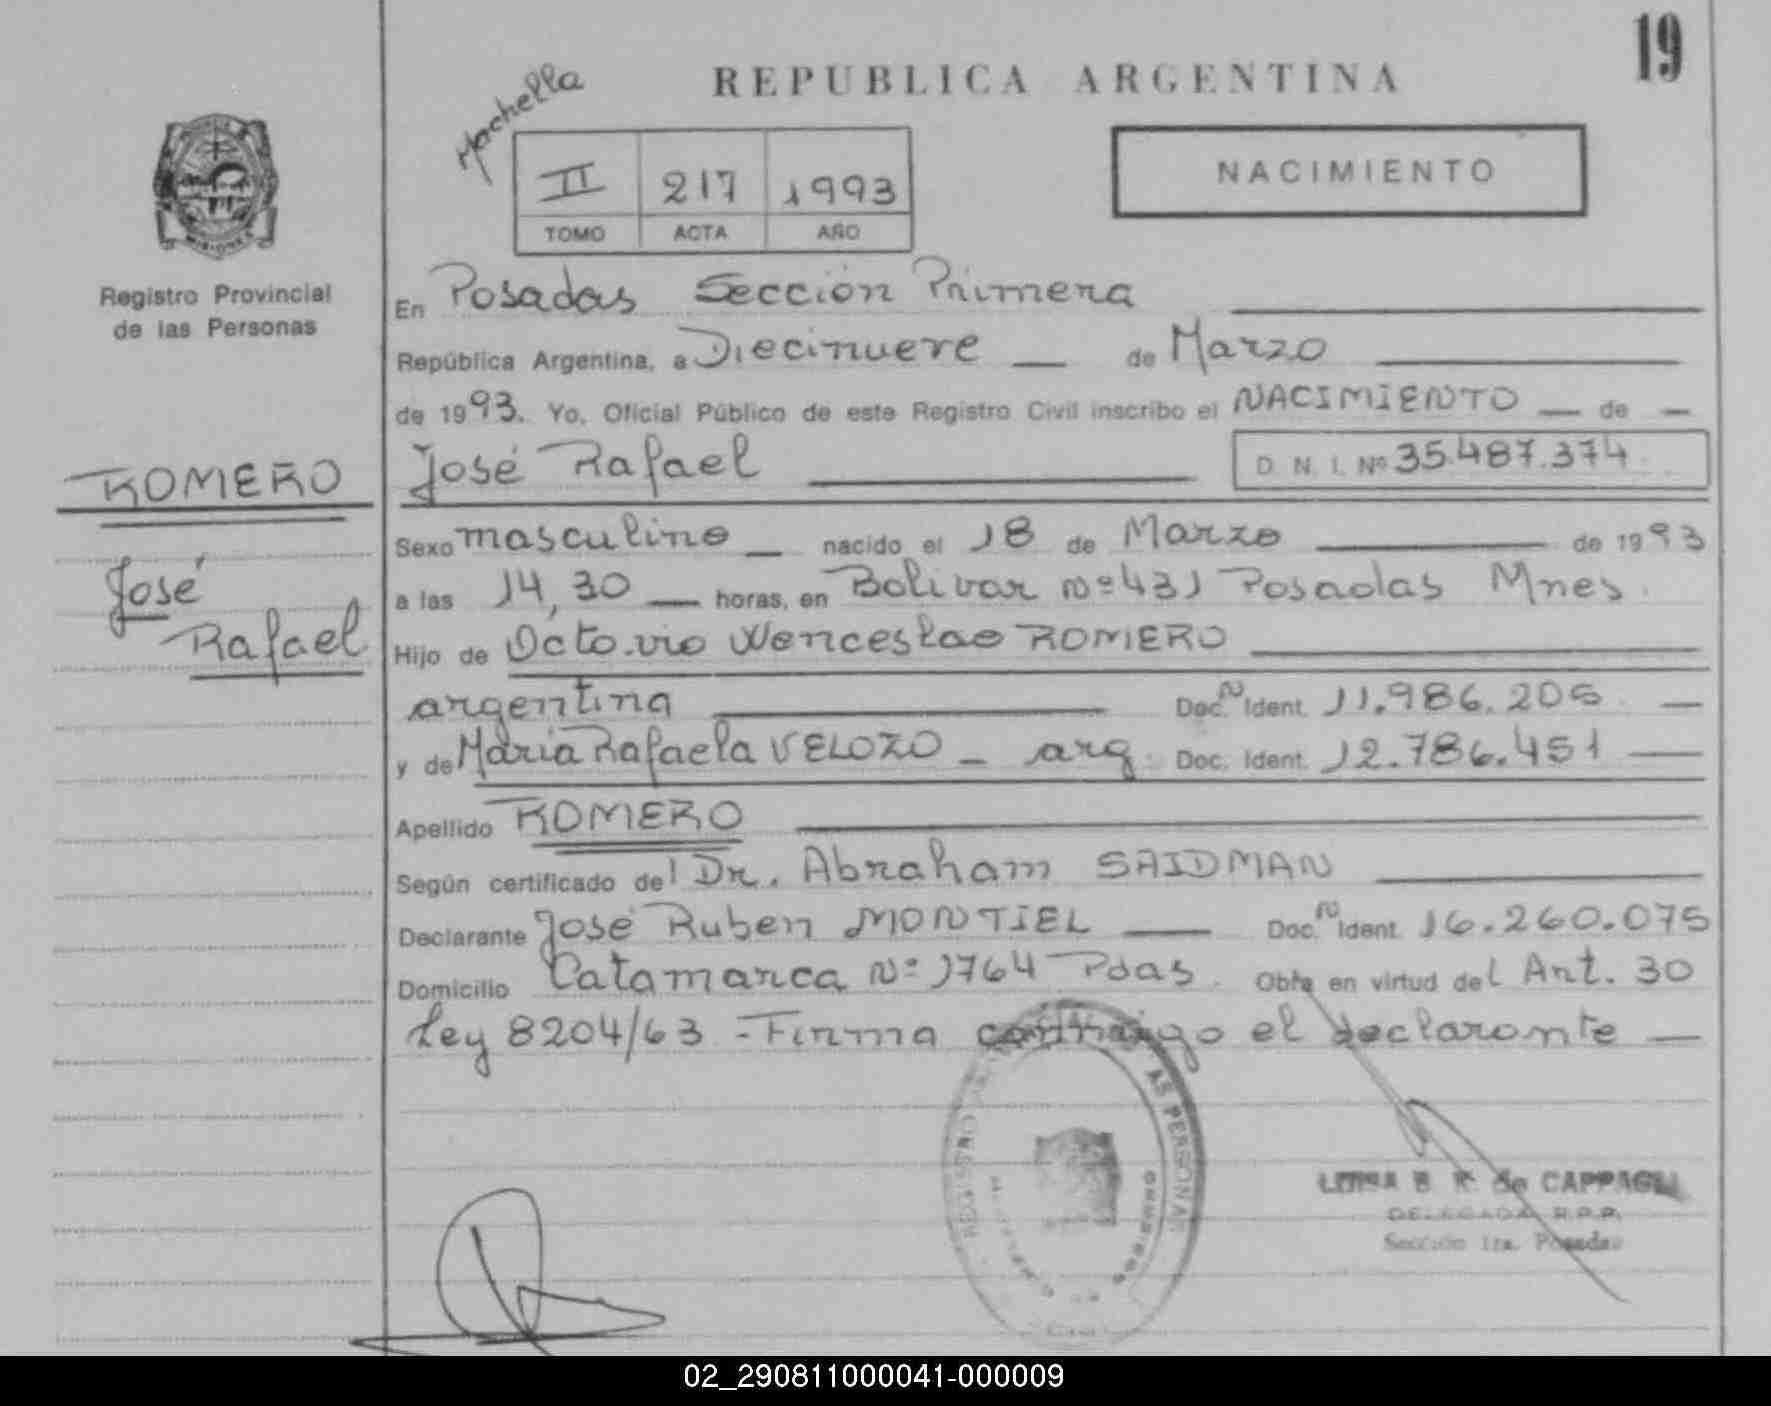 19
REPUBLICA ARGENTINA
Mochella
II 217 1993
TOMO ACTA AÑO
NACIMIENTO
MISIONES
Registro Provincial
de las Personas
En Posadas Sección Primera
República Argentina, a Diecinueve de Marzo
de 1993. Yo, Oficial Público de este Registro Civil inscribo el NACIMIENTO de
José Rafael D. N. I. Nº 35.487.374
ROMERO
José
Rafael
Sexo masculino nacido el 18 de Marzo de 1993
a las 14,30 horas, en Bolivar Nº 431 Posadas Mnes.
Hijo de Octavio Wenceslao ROMERO
argentina Doc. N Ident. 11.986.205
y de Maria Rafaela VELOZO - arg. Doc. Ident. 12.786.451
Apellido ROMERO
Según certificado del Dr. Abraham SAIDMAN
Declarante José Ruben MONTIEL Doc. N Ident. 16.260.075
Domicilio Catamarca Nº 1764 Pdas. Obra en virtud del Art. 30
Ley 8204/63 - Firma conmigo el declarante
REGISTRO AS PERSONAS
LUISA B. R. de CAPPAGLI
DELEGADA R.P.P.
Sección 1ra. Posadas
02_290811000041-000009